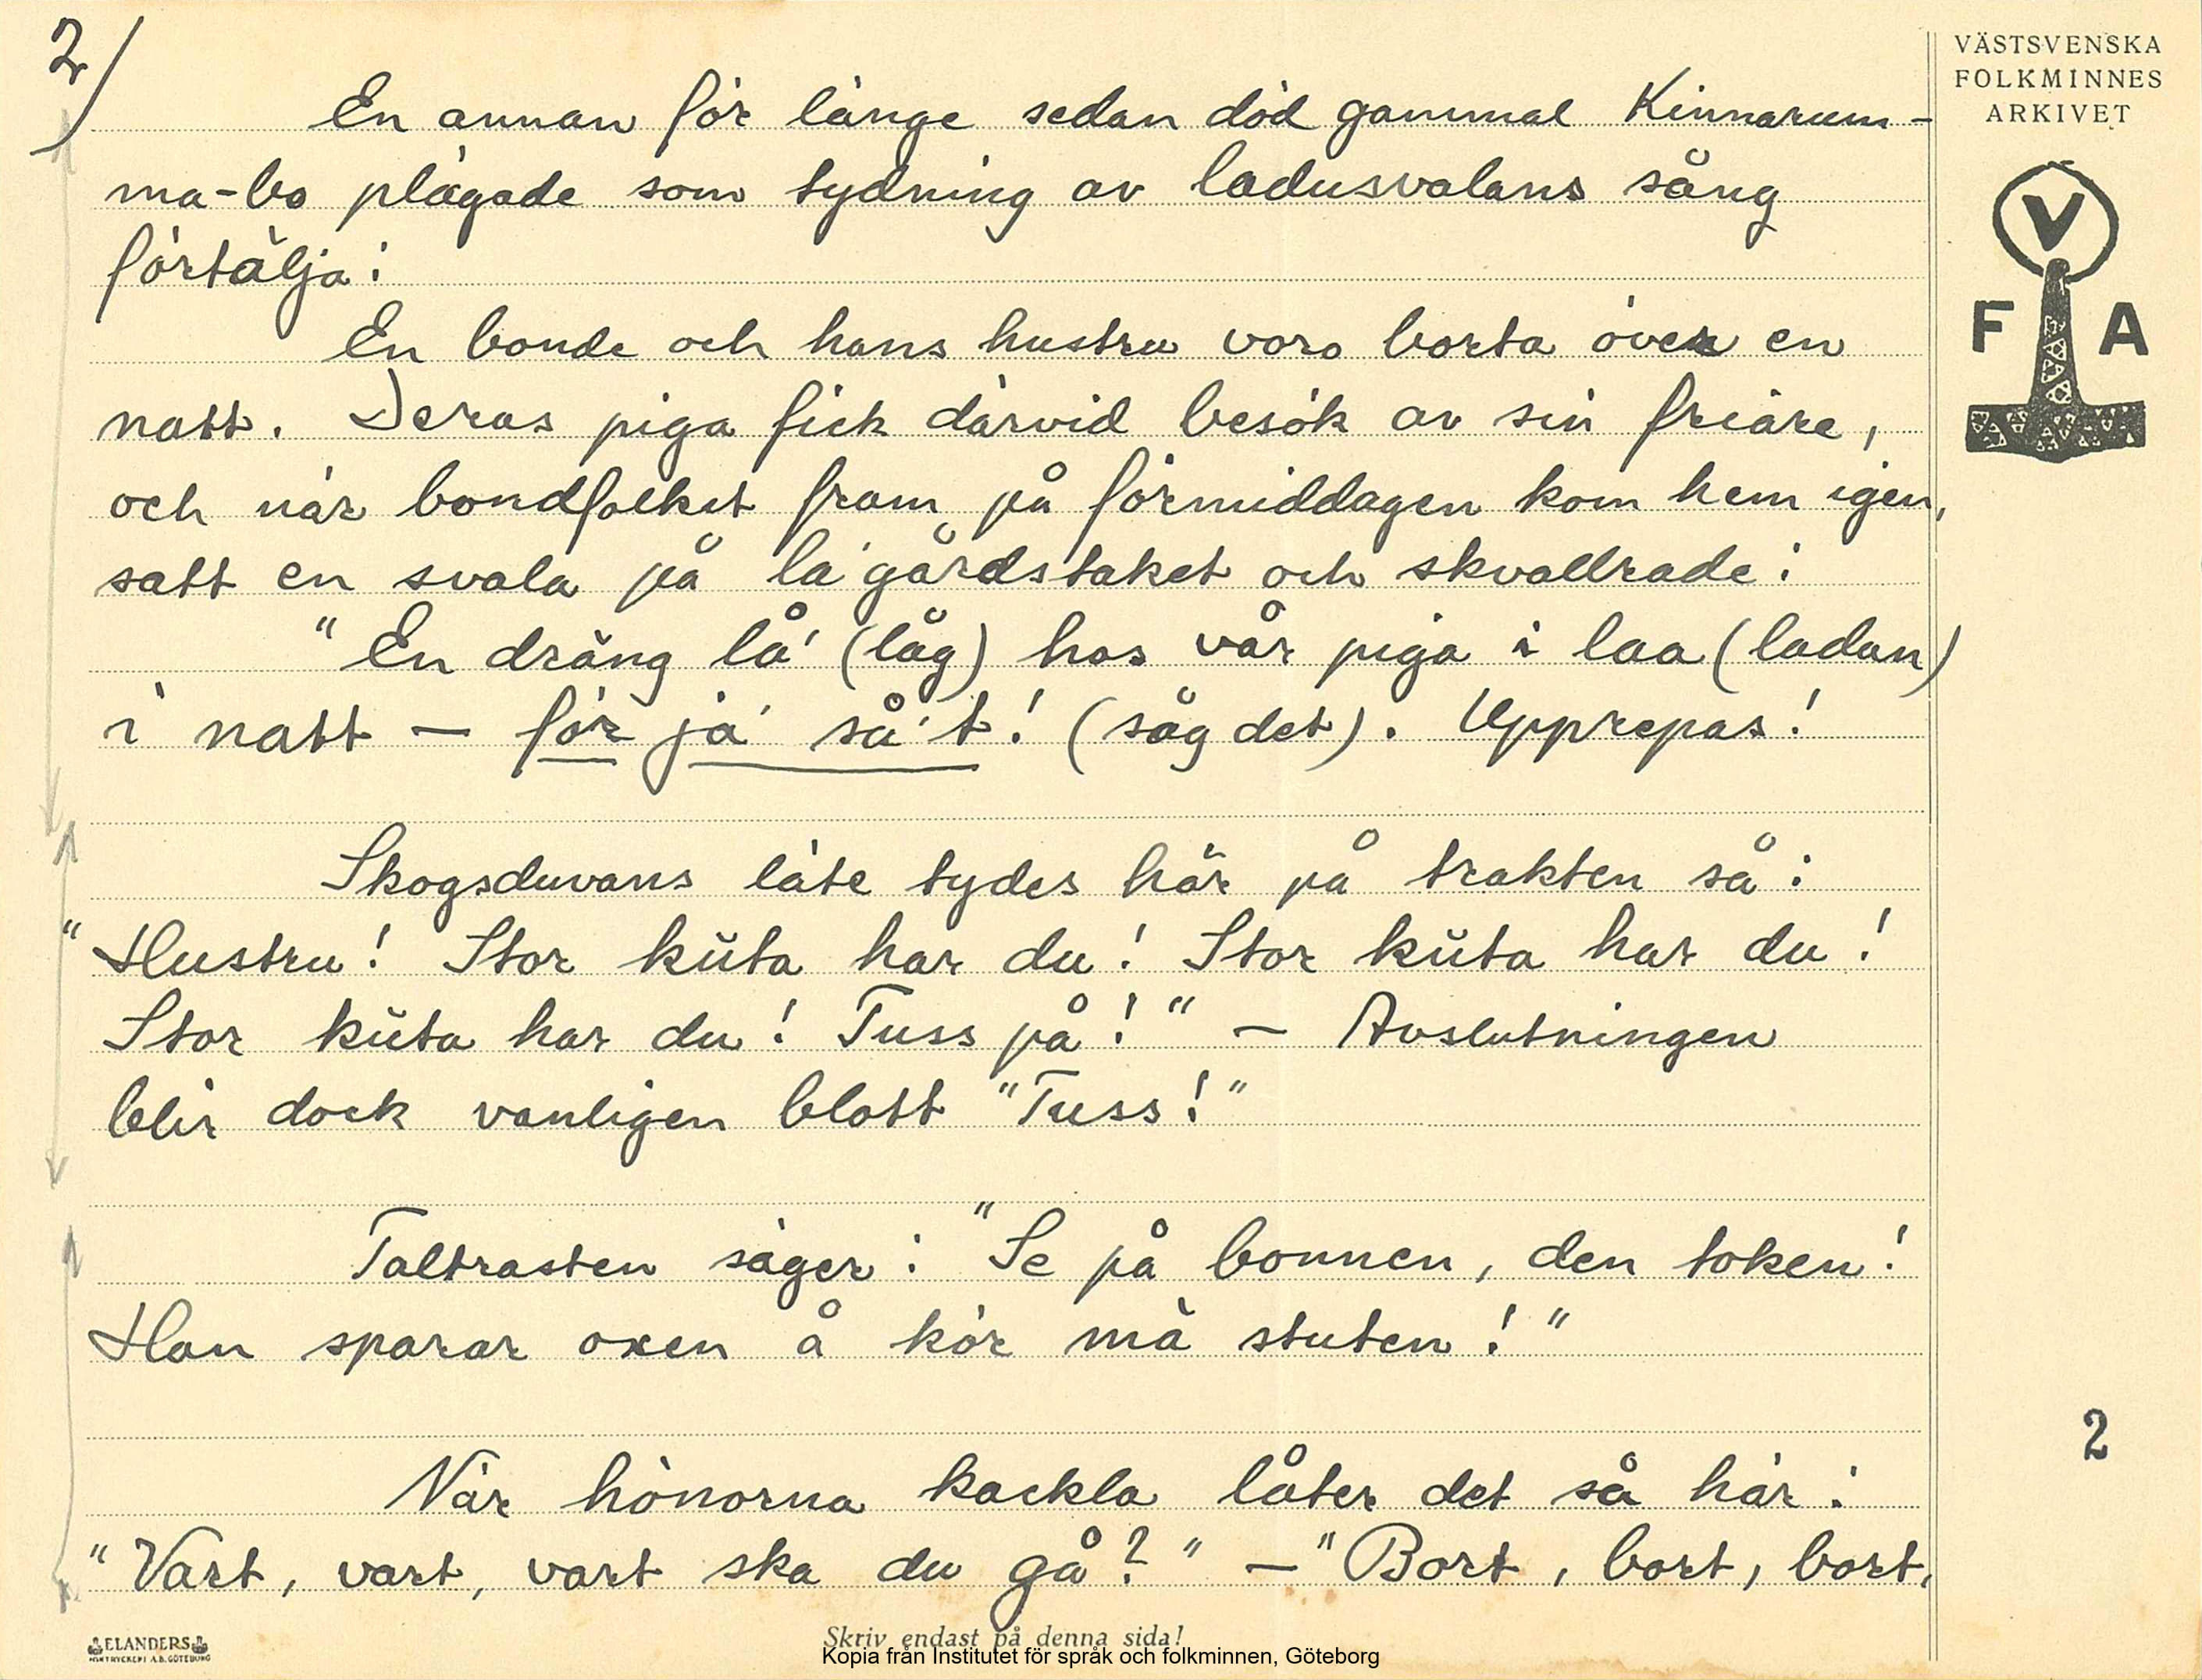 2/
VÄSTSVENSKA
FOLKMINNES
ARKIVET
V
F A
En annan för länge sedan död gammal Kinnarum-
ma-bo plägade som tydning av ladusvalans sång
förtälja:
En bonde och hans hustru voro borta över en
natt. Deras piga fick därvid besök av sin friare,
och när bondfolket fram på förmiddagen kom hem igen,
satt en svala på la'gårdstaket och skvallrade:
"En dräng lå' (låg) hos vår piga i laa (ladan)
i natt – för ja' så't! (såg det). Upprepas!
Skogsduvans läte tydes här på trakten så:
"Hustru! Stor kŭta har du! Stor kŭta har du!
Stor kŭta har du! Tuss på!" – Avslutningen
blir dock vanligen blott "Tuss!"
Taltrasten säger: "Se på bonnen, den token!
Han sparar oxen å kör mä stuten!"
När hönorna kackla låter det så här:
"Vart, vart, vart ska du gå?" – "Bort, bort, bort,
2
ELANDERS
BOKTRYCKERI A.B. GÖTEBORG
Skriv endast på denna sida!
Kopia från Institutet för språk och folkminnen, Göteborg